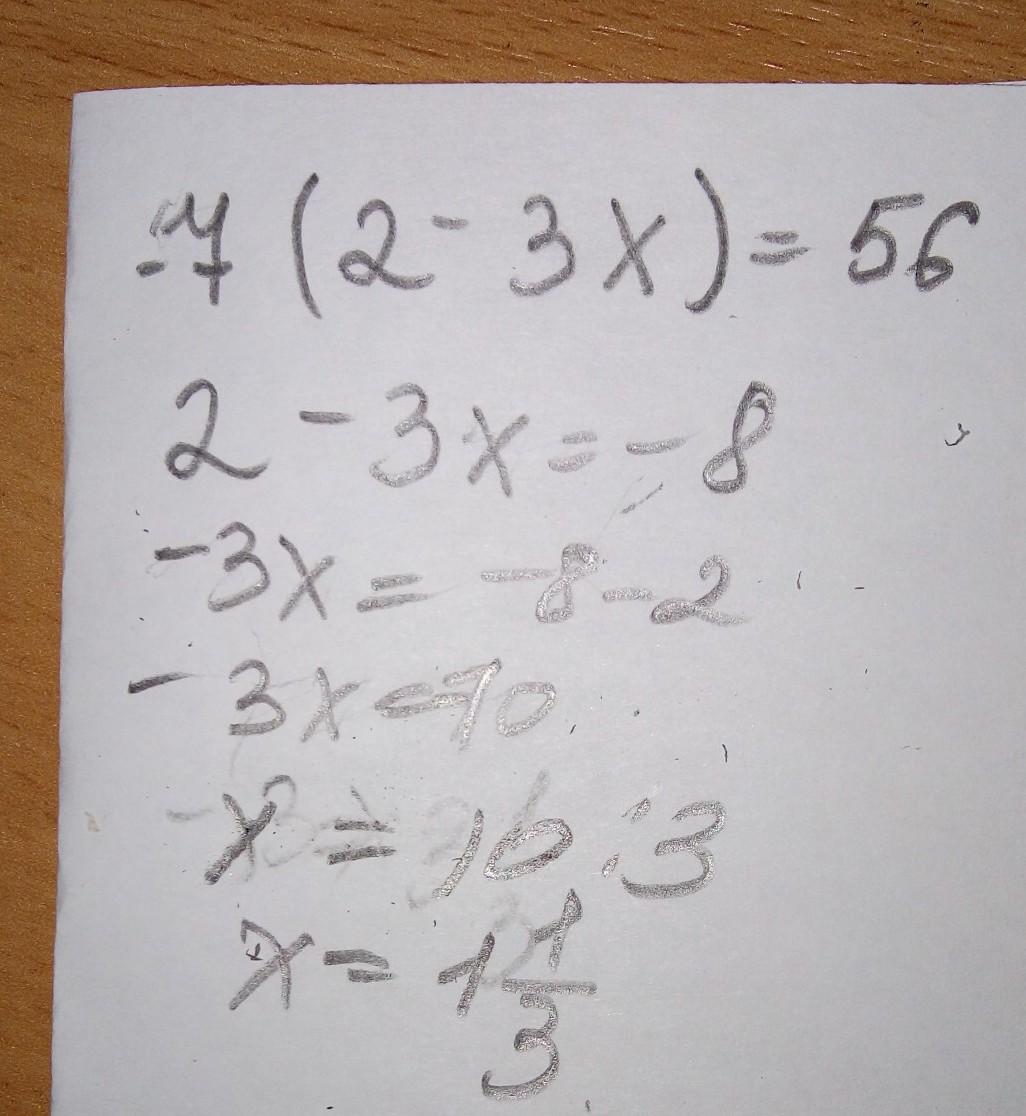 -7(2-3x)=56
2-3x=-8
-3x=-8-2
-3x=-10
x=10:3
x=1 1/3